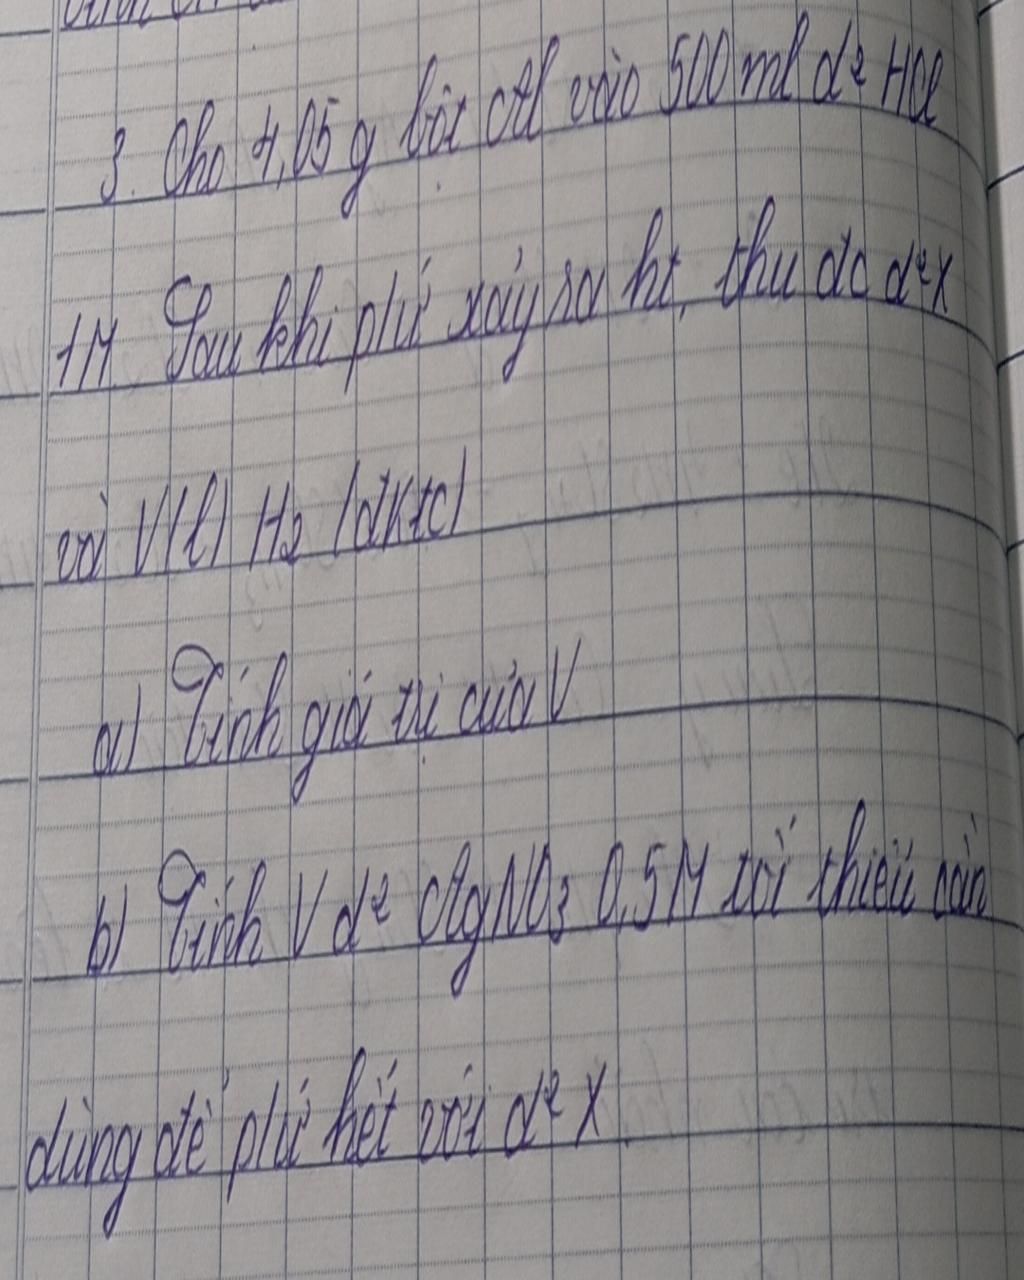 3. Cho 4,05 g bột Al vào 500 ml d² HCl
1M. Sau khi pứ xảy ra ht, thu đc d² X
và V(l) H2 (đktc)
a) Tính giá trị của V
b) Tính V d² AgNO3 0,5M tối thiểu cần
dùng để pứ hết với d² X.